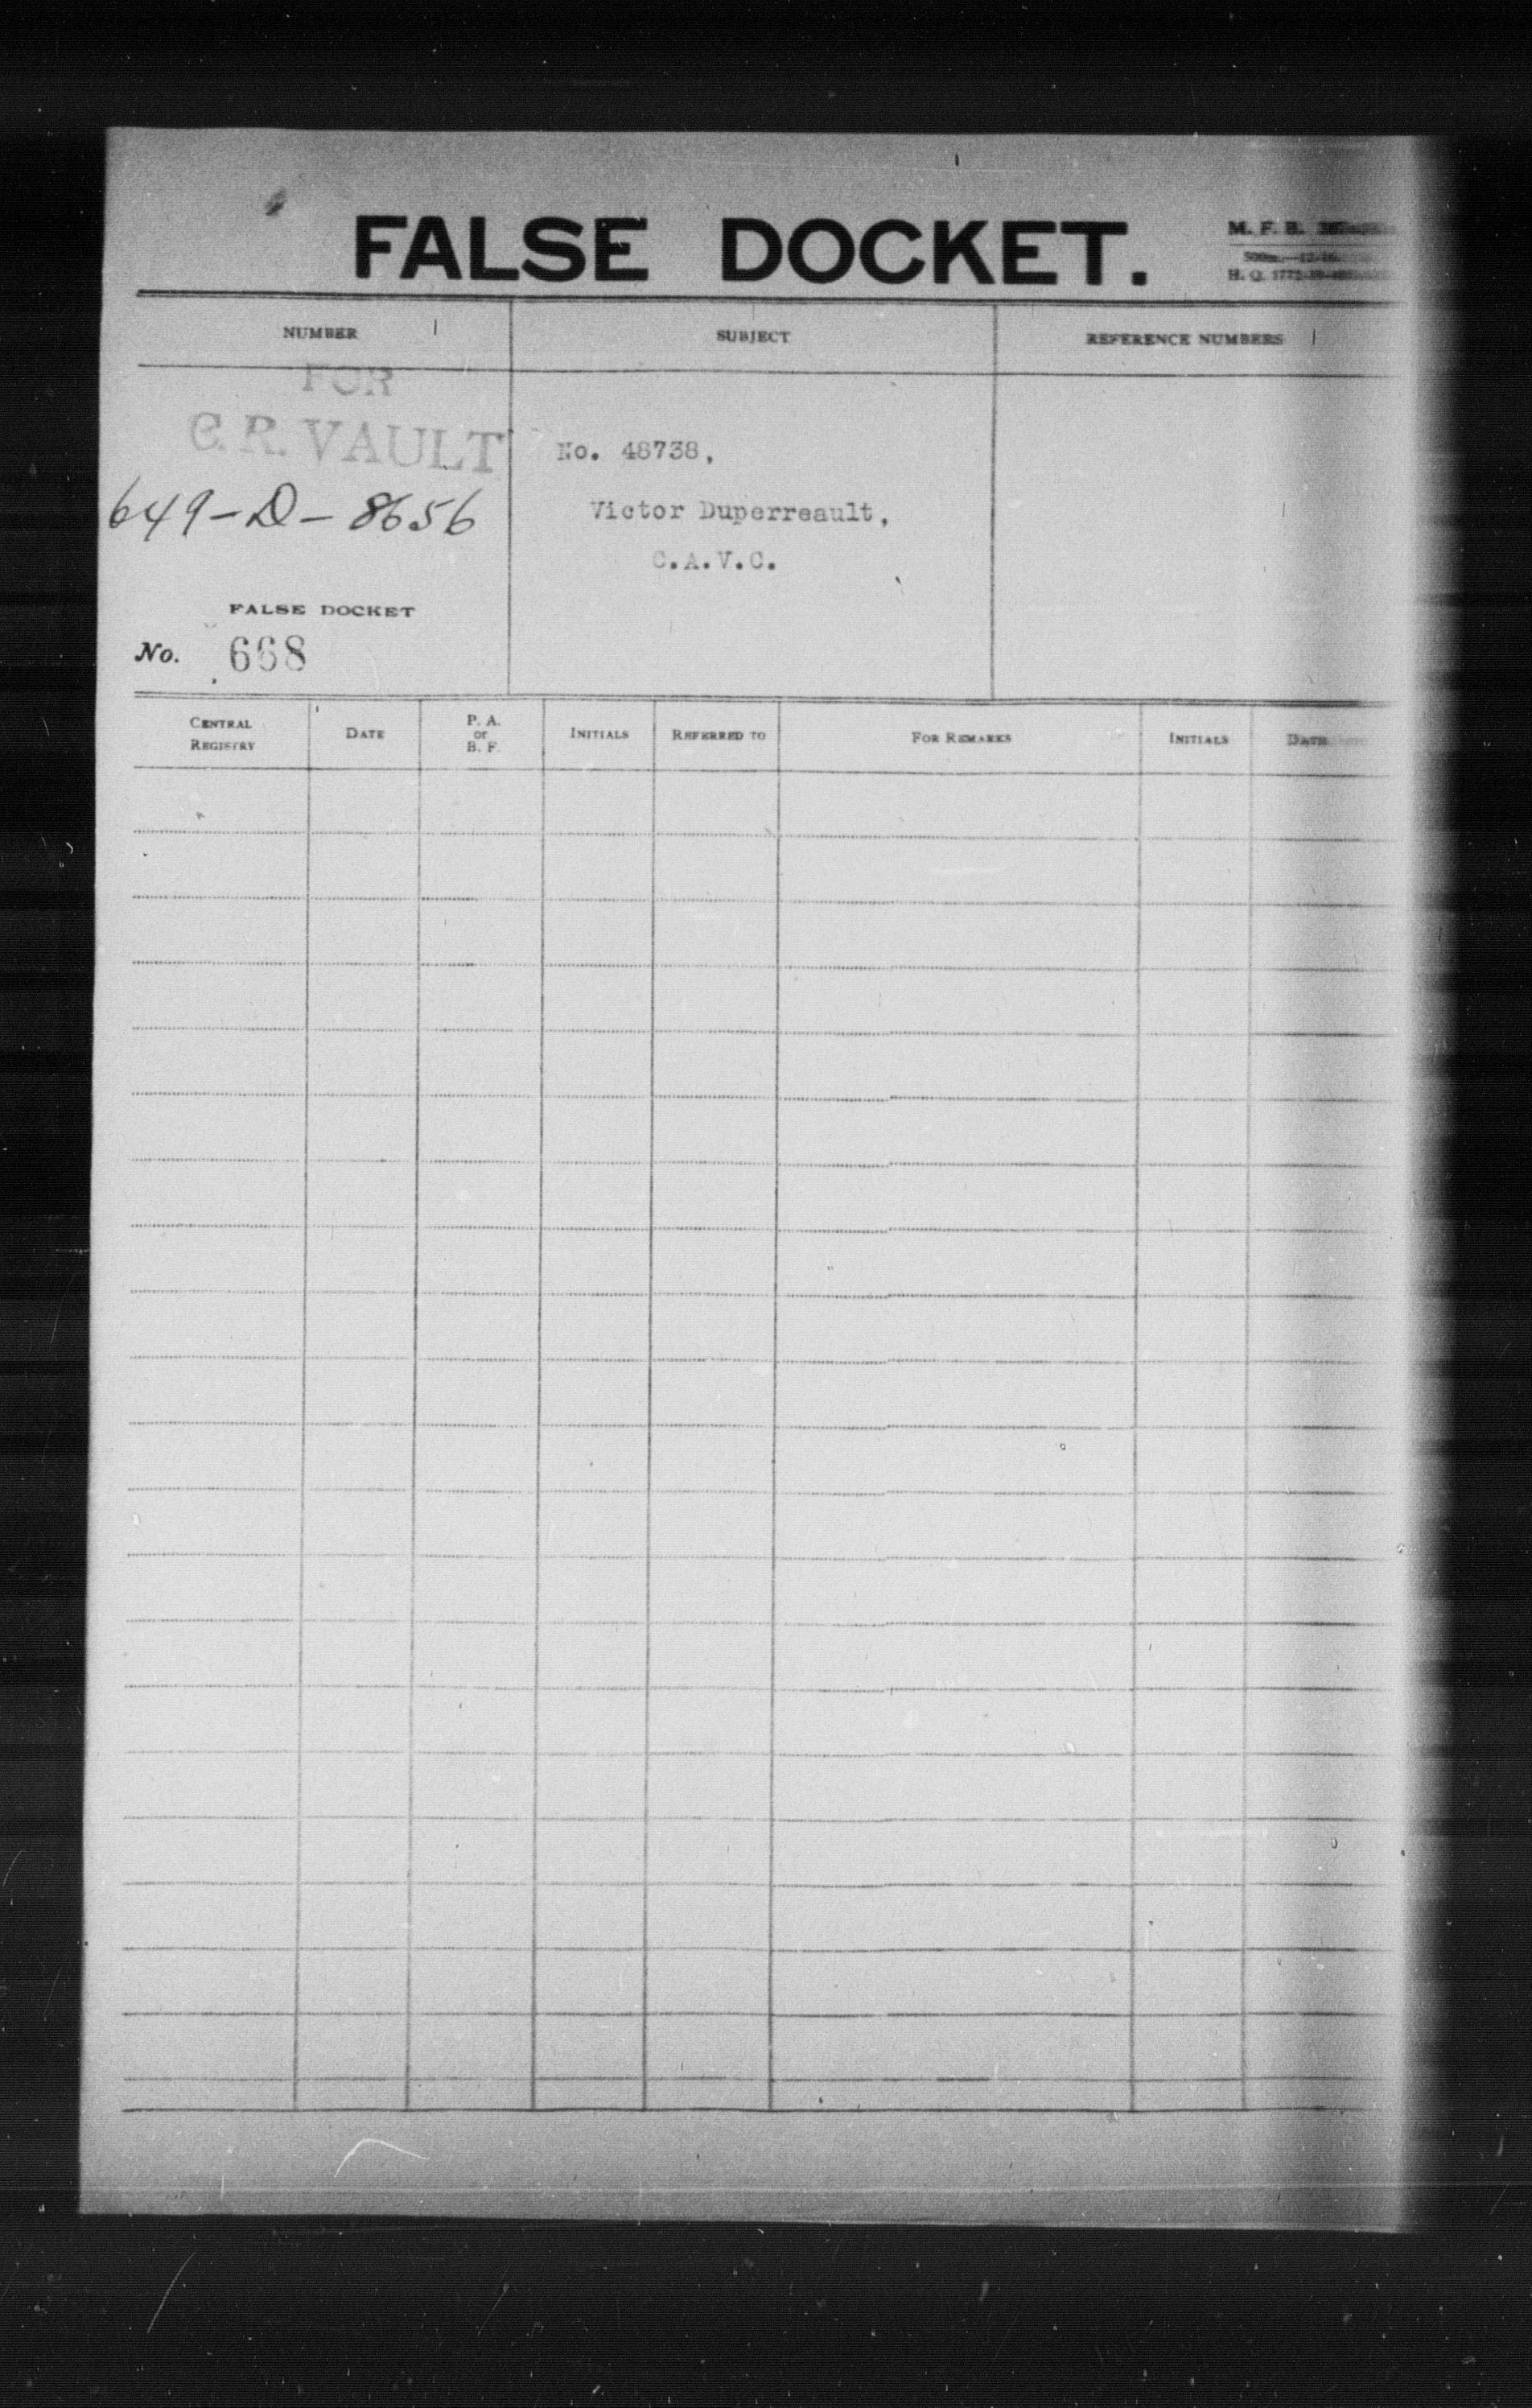 FALSE DOCKET.
M. F. B.
H. Q. 1772
NUMBER
SUBJECT
REFERENCE NUMBERS
FOR
C.R. VAULT
649-D-8656
No. 48738,
Victor Duperreault,
C.A.V.C.
FALSE DOCKET
No. 668
CENTRAL REGISTRY
DATE
P. A. or B. F.
INITIALS
REFERRED TO
FOR REMARKS
INITIALS
DATE